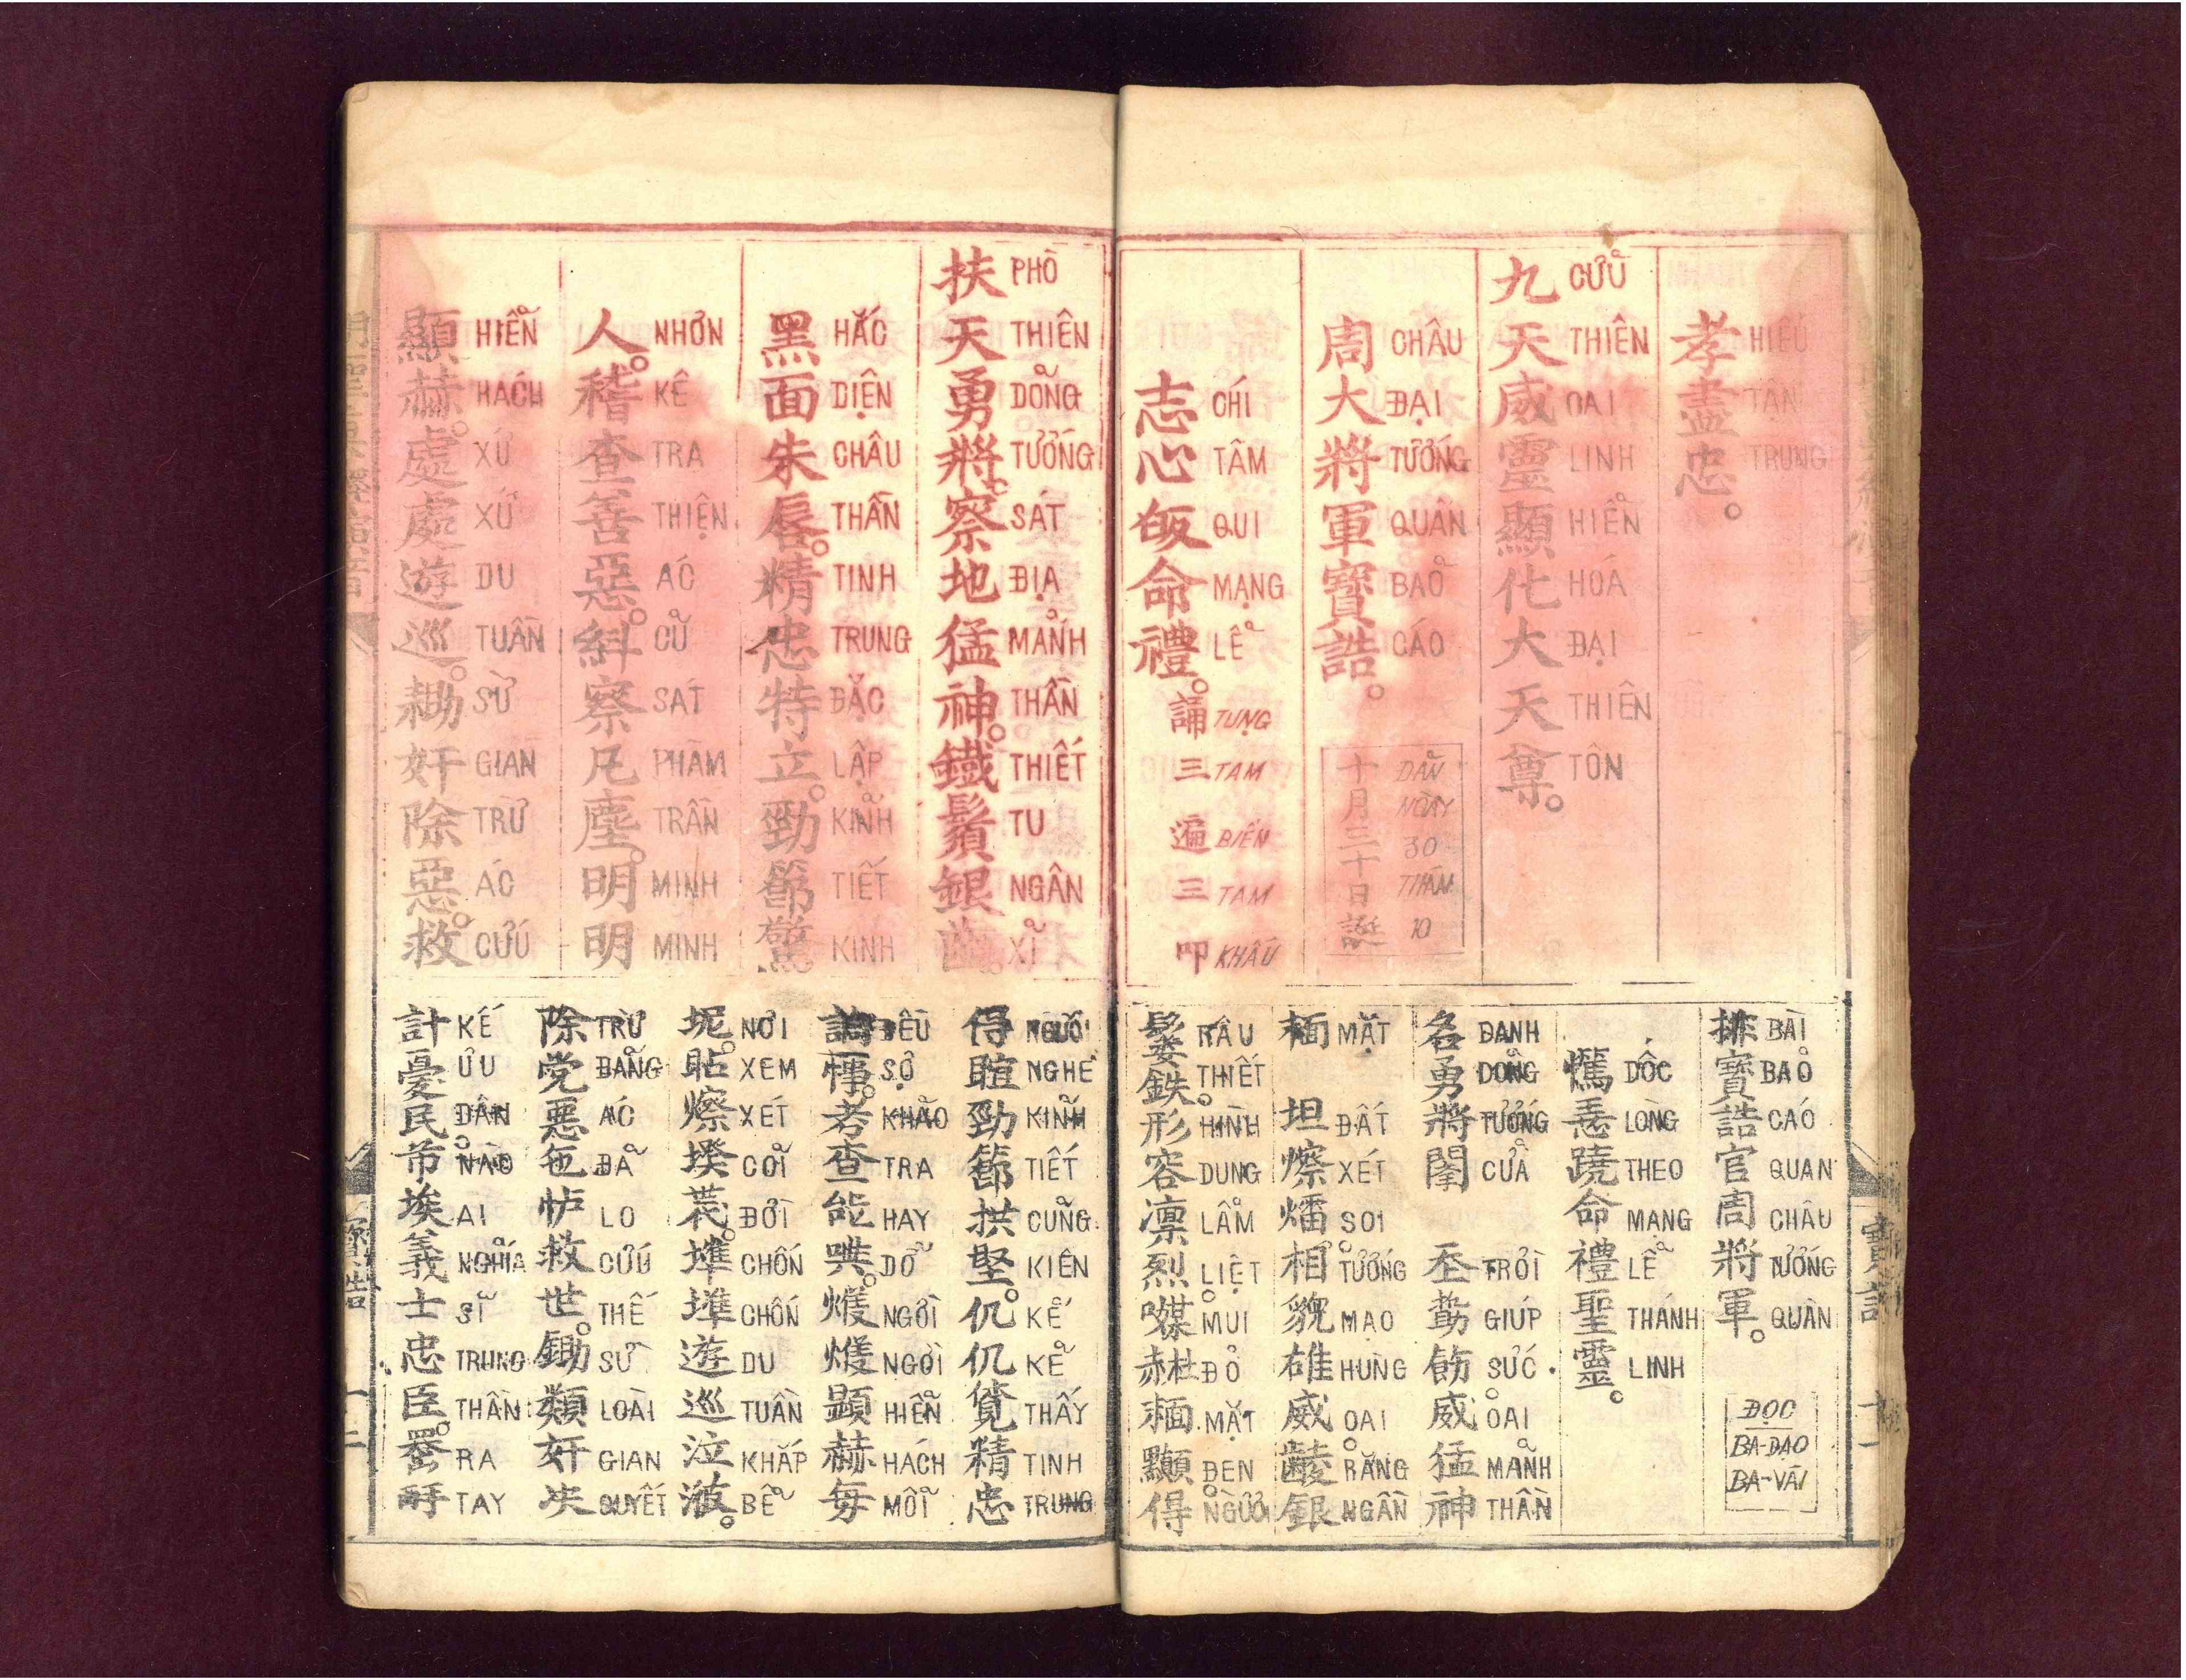 孝盡忠。
HIẾU TẬN TRUNG
九天威靈顯化大天尊。
CỬU THIÊN OAI LINH HIỂN HOÁ ĐẠI THIÊN TÔN
周大將軍寶誥。
CHÂU ĐẠI TƯỚNG QUÂN BẢO CÁO
十月三十日誕
ĐẢN NGÀY 30 THÁNG 10
志心皈命禮。誦三遍三叩
CHÍ TÂM QUI MẠNG LỄ TỤNG TAM BIẾN TAM KHẤU
排寶誥官周將軍。
BÀI BẢO CÁO QUAN CHÂU TƯỚNG QUÂN
ĐỌC
BA-DẠO
BA-VÁI
命禮聖靈。
DỐC LÒNG THEO MẠNG LỄ THÁNH LINH
名勇將 威猛神
DANH DÕNG TƯỚNG CỬA TRỜI GIÚP SỨC OAI MÃNH THẦN
坦 相貌雄威 銀
MẶT ĐẤT XÉT SOI TƯỚNG MẠO HÙNG OAI RĂNG NGẦN
鉄。形容凛烈。
RÂU THIẾT HÌNH DUNG LẪM LIỆT MUI ĐỎ MẶT ĐEN NGƯỜI
扶天勇將。察地猛神。鐵鬚銀齒。
PHÒ THIÊN DÕNG TƯỚNG SÁT ĐỊA MÃNH THẦN THIẾT TU NGÂN XỈ
黑面朱唇。精忠特立。勁節驚
HẮC DIỆN CHÂU THẦN TINH TRUNG ĐẶC LẬP KINH TIẾT KINH
人。稽查善惡。糾察凡塵。明明
NHƠN KÊ TRA THIỆN ÁC CŨ SÁT PHÀM TRẦN MINH MINH
顯赫。處處遊巡。耡奸除惡。救
HIỂN HÁCH XỨ XỨ DU TUẦN SỪ GIAN TRỪ ÁC CỨU
得 勁節拱堅。仉仉 精忠
NGƯỜI NGHE KINH TIẾT CŨNG KIÊN KẺ KẺ THẤY TINH TRUNG
考查 顕赫每
ĐỀU SỢ KHẢO TRA HAY DỞ NGỜI NGỜI HIỂN HÁCH MỖI
坭。 遊巡泣
NƠI XEM XÉT CÕI ĐỜI CHỐN CHỐN DU TUẦN KHẮP BỂ
除党惡 救世。鋤類奸决
TRỪ ĐẢNG ÁC ĐÃ LO CỨU THẾ SỪ LOÀI GIAN QUYẾT
計憂民 埃義士忠臣。
KẾ ƯU DÂN NÀO AI NGHĨA SĨ TRUNG THẦN RA TAY
寶誥 十一
寶誥 十二